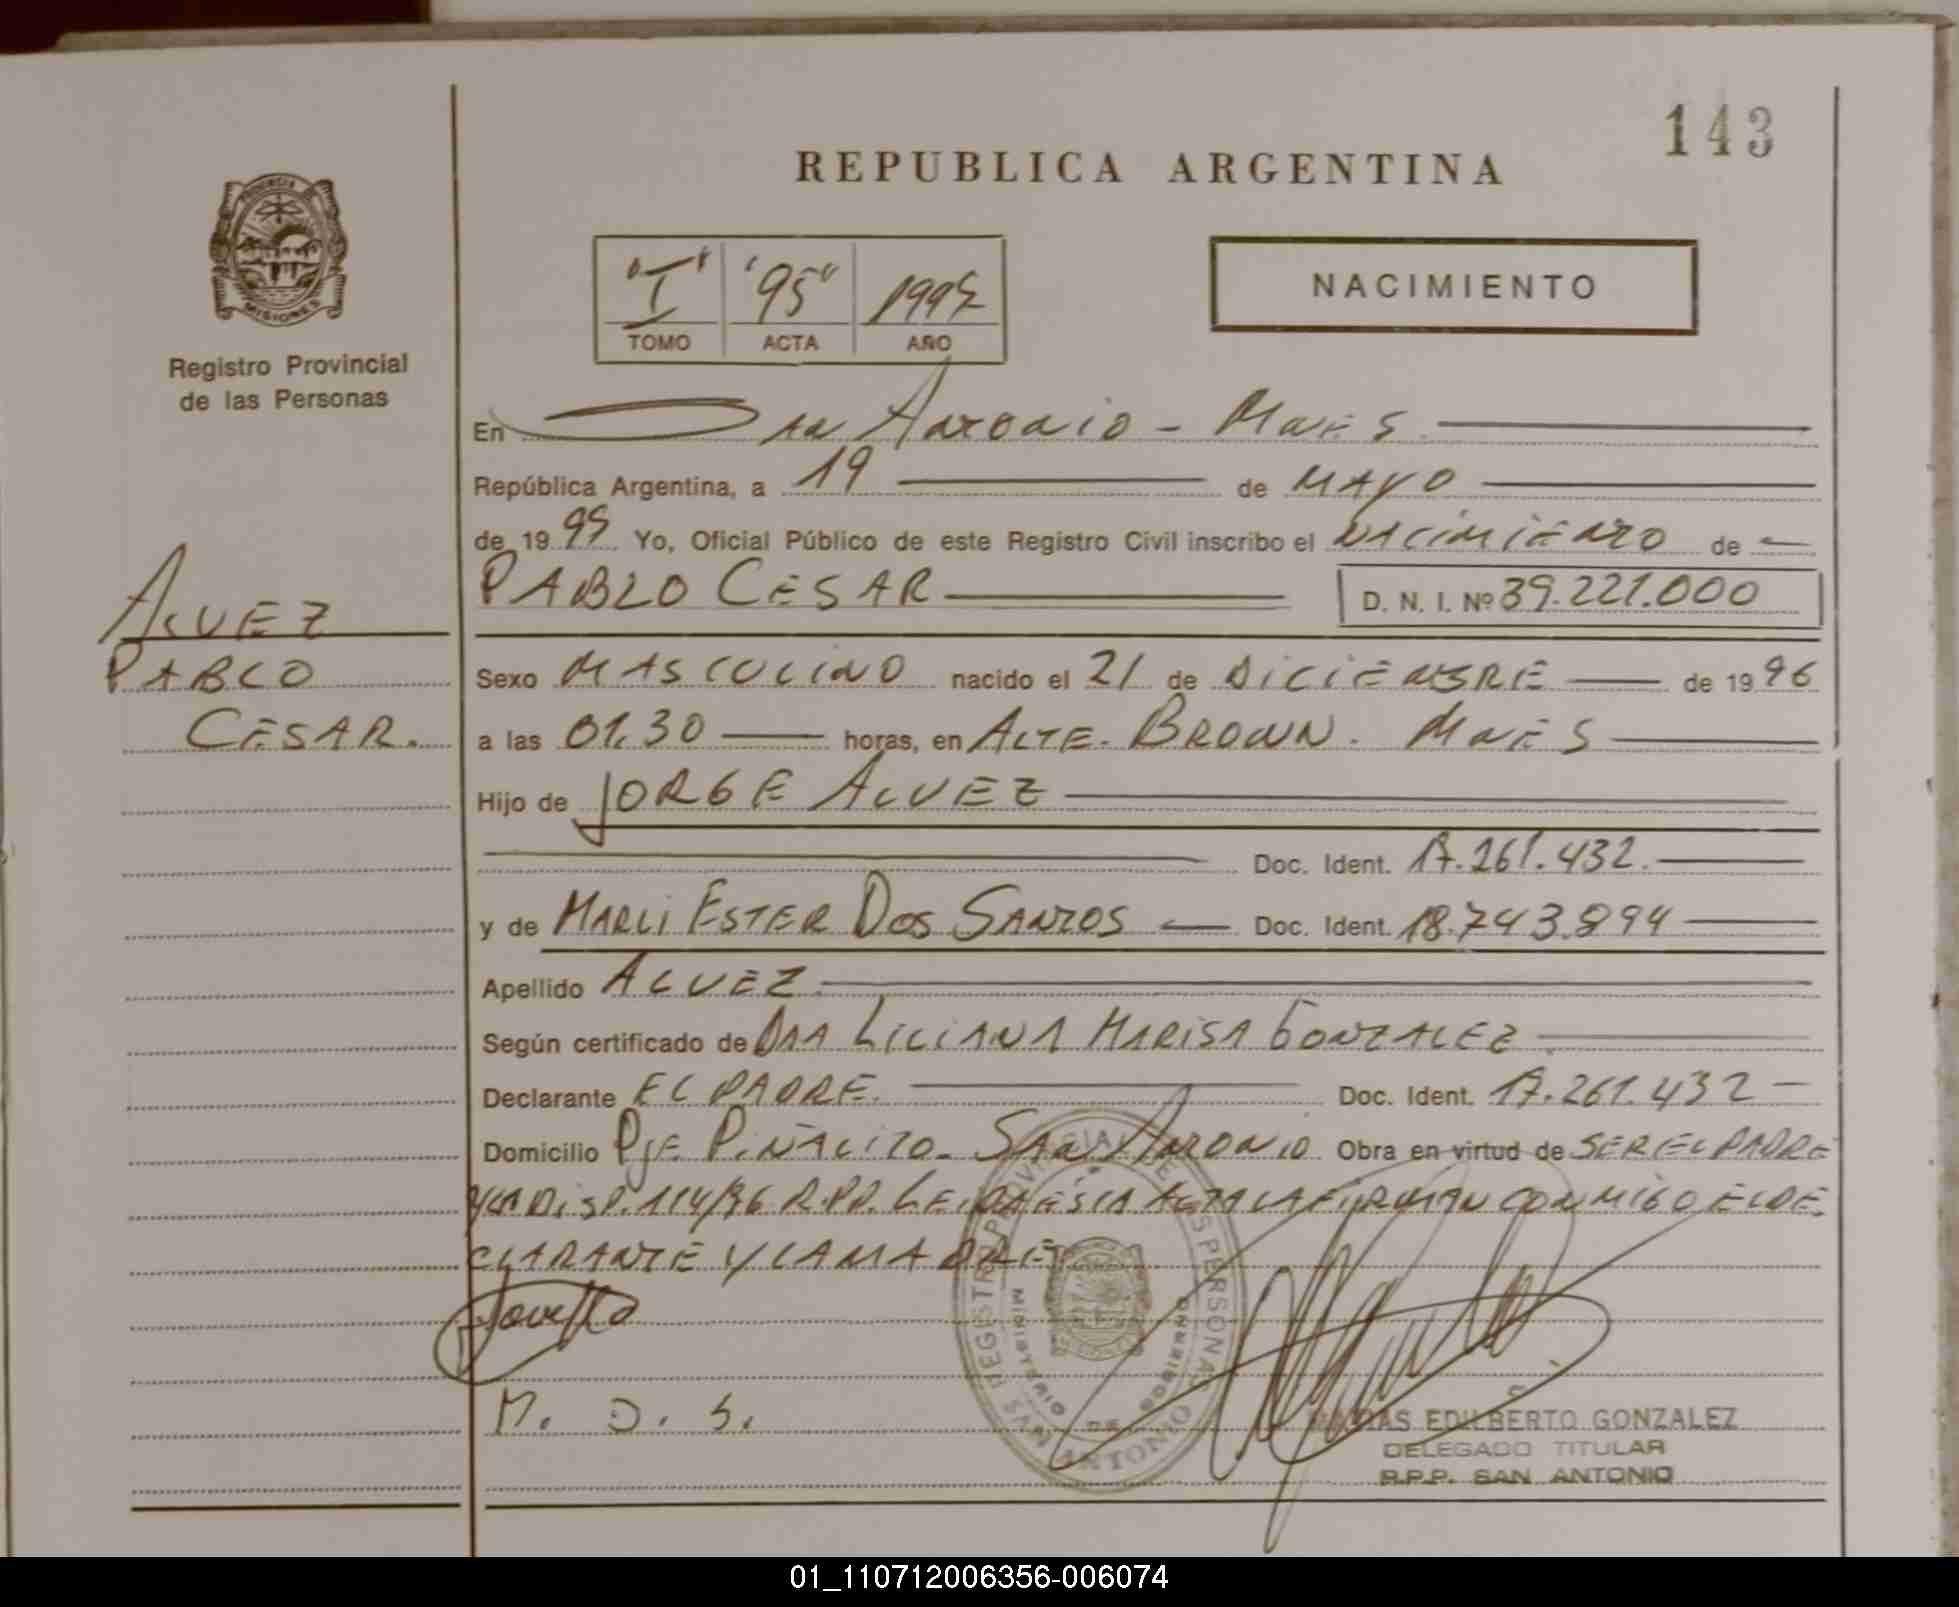 143
REPUBLICA ARGENTINA
PROVINCIA
MISIONES
Registro Provincial
de las Personas
"I" "95"
TOMO ACTA AÑO
NACIMIENTO
En San Antonio - Mnes
República Argentina, a 19 de MAYO
de 19 Yo, Oficial Público de este Registro Civil inscribo el NACIMIENTO de
PABLO CESAR D. N. I. Nº 39.221.000
ALVEZ
PABLO
CESAR.
Sexo MASCULINO nacido el 21 de DICIEMBRE de 1996
a las 01.30 horas, en ALTE. BROWN. MNES
Hijo de JORGE ALVEZ
Doc. Ident. 17.261.432.
y de MARLI ESTER DOS SANTOS Doc. Ident. 18.743.894
Apellido ALVEZ
Según certificado de DRA LILIANA MARISA GONZALEZ
Declarante EL PADRE. Doc. Ident. 17.261.432
Domicilio PJE PIÑALITO - SAN ANTONIO Obra en virtud de SER EL PADRE
Y LA DISP. 114/96 R.P.P. LEIDA ESTA ACTA LA FIRMAN CONMIGO EL DE
CLARANTE Y LA MADRE
M. D. S.
REGISTRO PROVINCIAL DE LAS PERSONAS
MINISTERIO DE GOBIERNO
SAN ANTONIO
EDILBERTO GONZALEZ
DELEGADO TITULAR
R.P.P. SAN ANTONIO
01_110712006356-006074